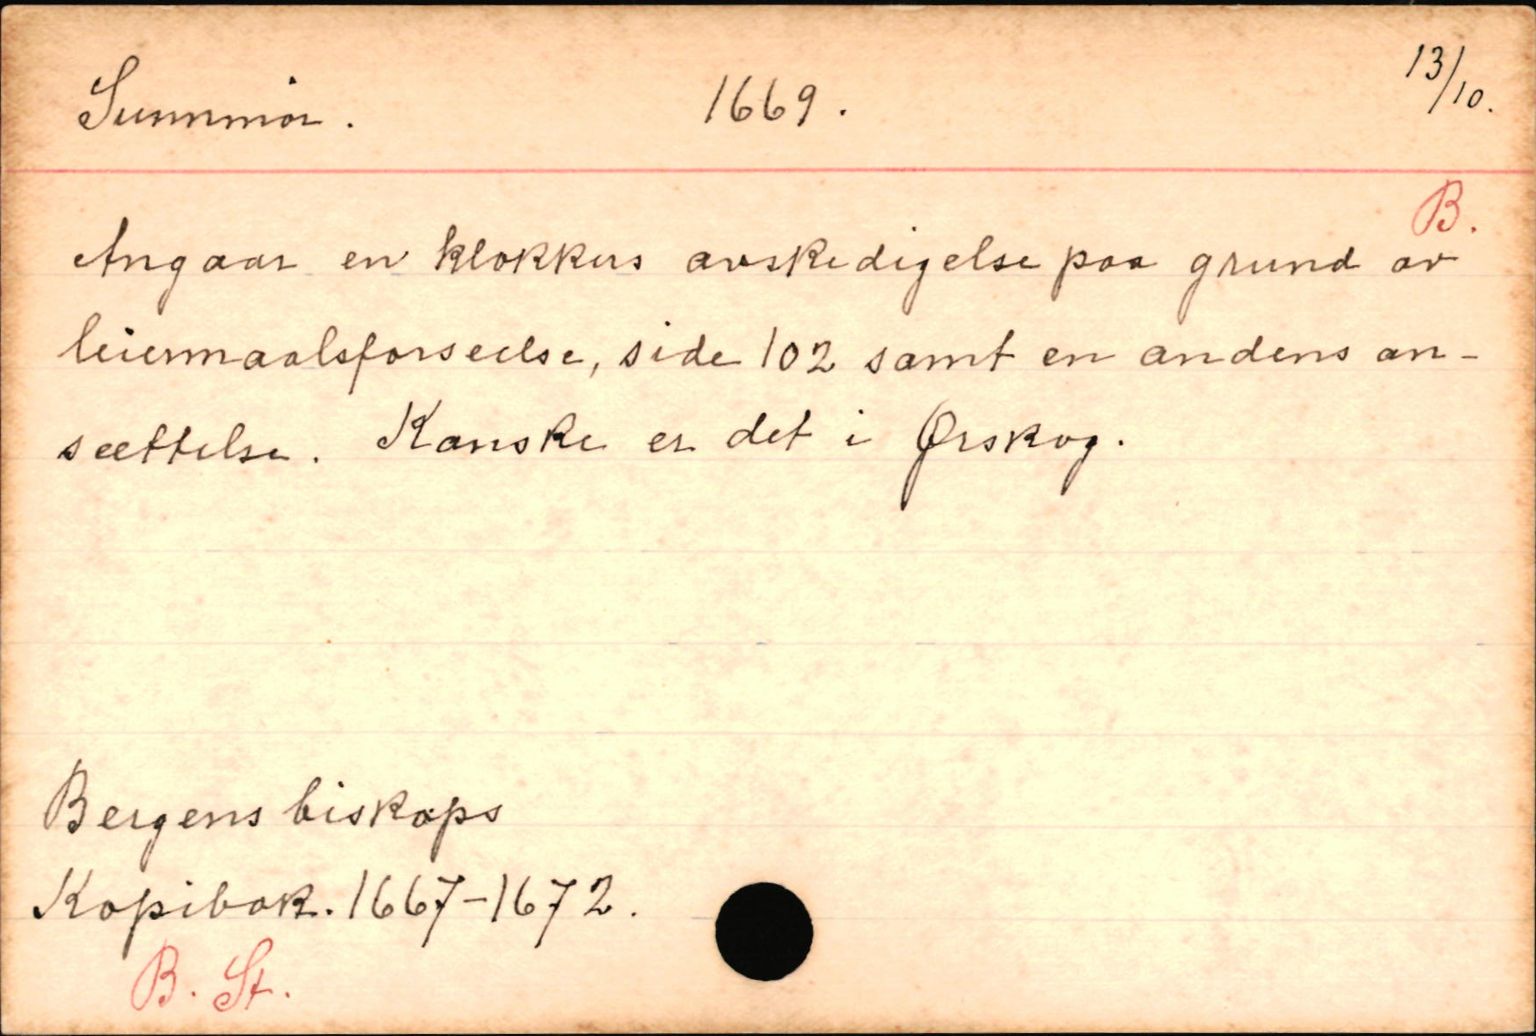 Sunnmör. 1669. 13/10.
B.
Angaar en klokkers avskedigelse paa grund av
leiermaalsforseelse, side 102 samt en andens an-
sættelse. Kanske er det i Ørskog.
Bergens biskops
Kopibok. 1667-1672.
B. St.